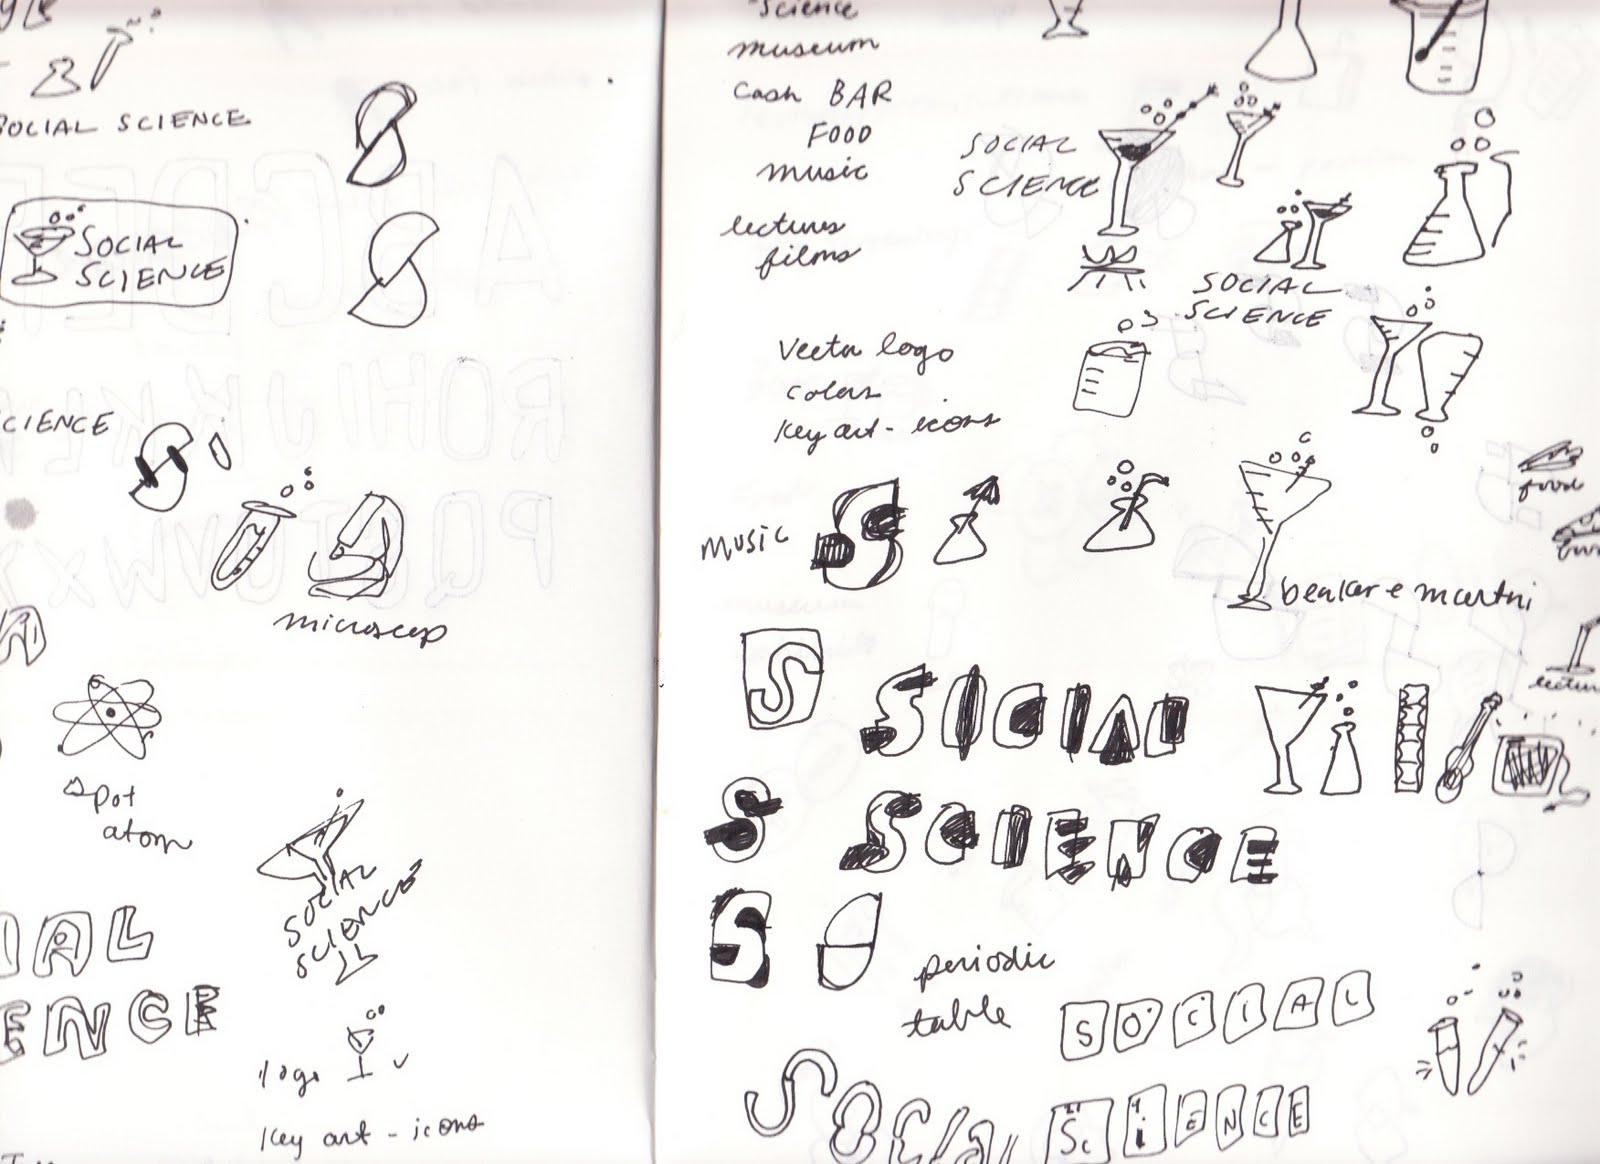 SOCIAL SCIENCE
SOCIAL
SCIENCE
SCIENCE
microscop
Spot
atom
SOCIAL
SCIENCE
IAL
ENCE
logo
key art - icons
science
museum
cash BAR
FOOD
music
lectures
films
SOCIAL
SCIENCE
SOCIAL
SCIENCE
Vecta logo
colors
key art - icons
food
music
S
beaker + martini
lectur
S
SOCIAL
S
SCIENCE
S
periodic
table
SOCIAL
SOCIAL
SCIENCE